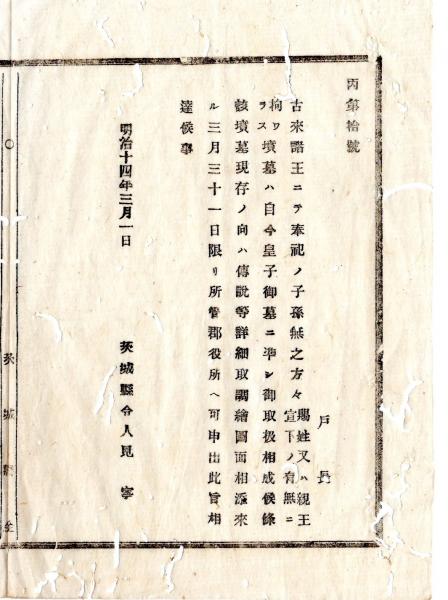 丙第拾號
戸長
古來諸王ニテ奉祀ノ子孫無之方々賜姓又ハ親王宣下ノ有無ニ
拘ワラス墳墓ハ自今皇子御墓ニ準シ御取扱相成候條
該墳墓現存ノ向ハ傳説等詳細取調繪圖面相添來
ル三月三十一日限リ所管郡役所ヘ可申出此旨相
達候事
明治十四年三月一日
茨城縣令人見寧
茨城縣